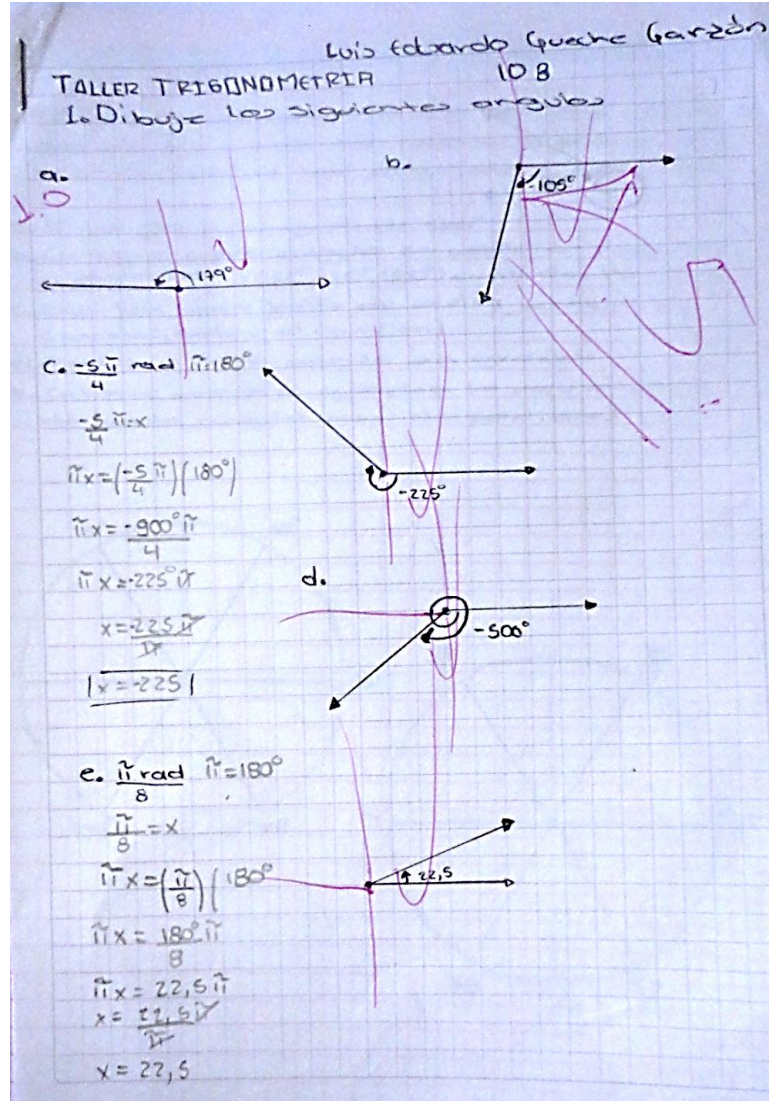 Luis Eduardo Queche Garzón
TALLER TRIGONOMETRIA 10 B
1. Dibuje los siguientes angulos
a.
1.0
179°
b.
-105°
c. -5π/4 rad π=180°
-5/4 π=x
πx=(-5/4 π)(180°)
πx=-900°π/4
πx=-225°π
x=-225π/π
|x=-225|
-225°
d.
-500°
e. π rad/8 π=180°
π/8=x
πx=(π/8)(180°
πx=180°π/8
πx=22,5π
x=22,5π/π
x=22,5
22,5